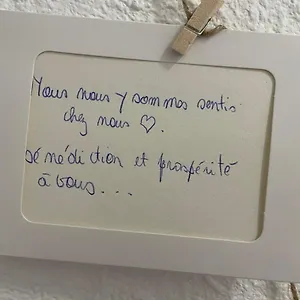 Nous nous y sommes sentis
chez nous ♡.
Bénédiction et prospérité
à vous...